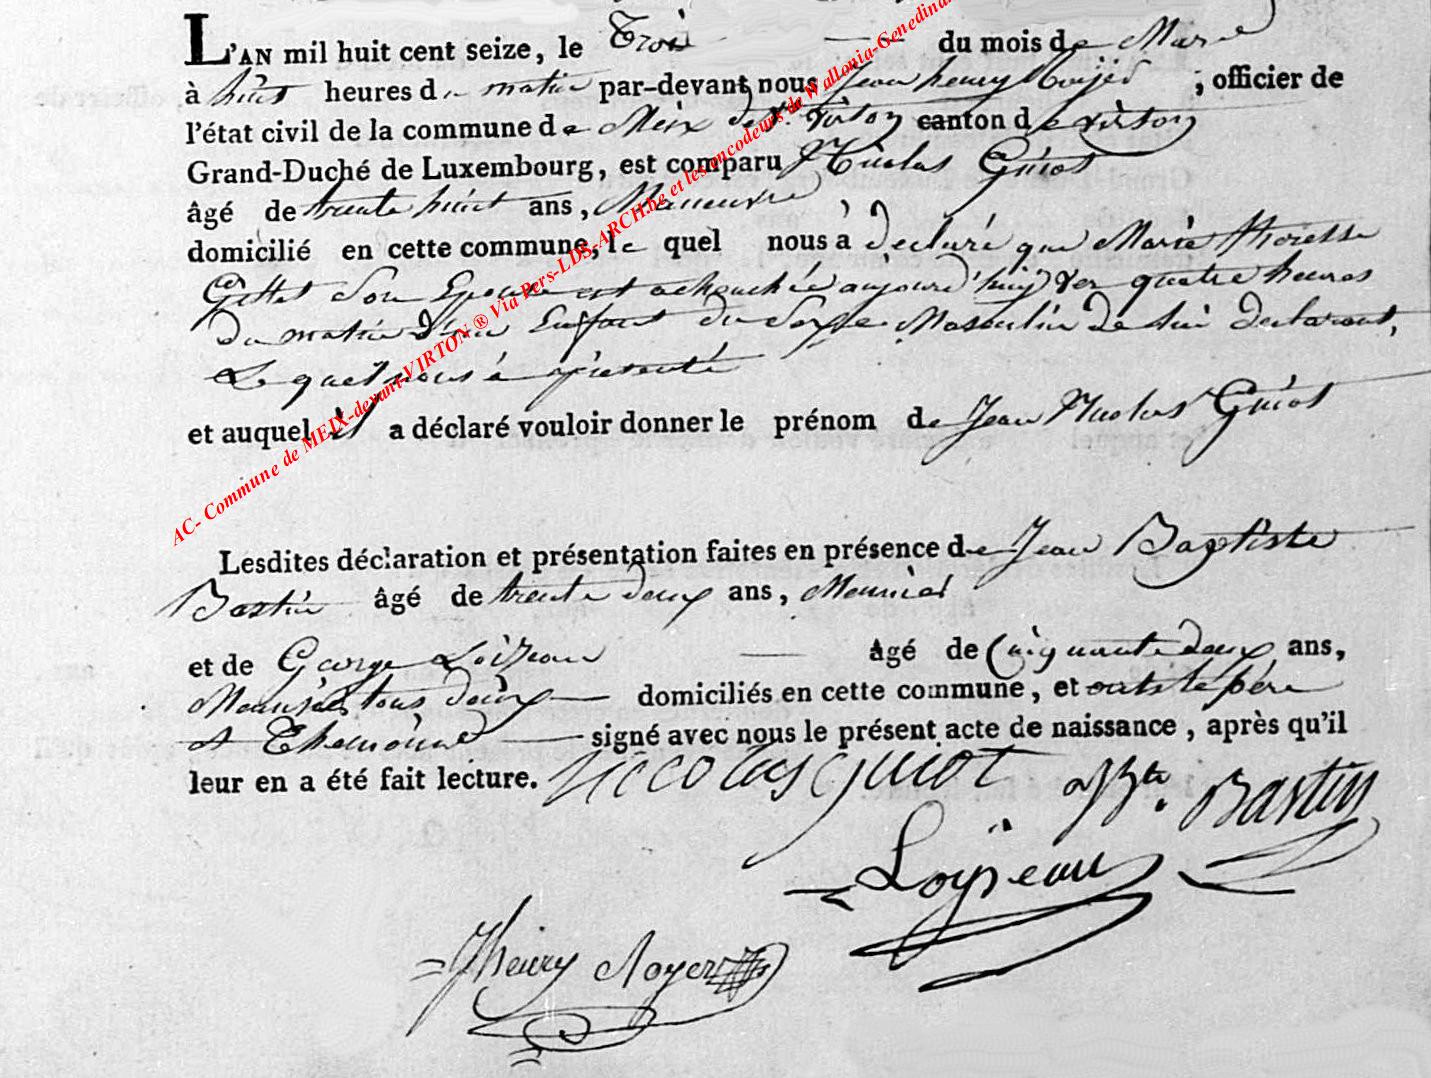 L'AN mil huit cent seize, le Trois du mois de Mars
à huit heures du matin par-devant nous Jean henry ; officier de
l'état civil de la commune de Meix dt. Virton canton de virton
Grand-Duché de Luxembourg, est comparu Nicolas Guiot
âgé de trente huit ans, Maneuvre,
domicilié en cette commune, le quel nous a déclaré que Marie thoresse
son Epouse est achouchée aujourd'huy quatre heures
du matin d'un Enfant du Sexe Masculin de lui declarant,
Le quel nous à présenté
et auquel il a déclaré vouloir donner le prénom de Jean Nicolas Guiot
Lesdites déclaration et présentation faites en présence de Jean Baptiste
Bastin âgé de trente deux ans, Meunier
et de George Loizeau âgé de Cinquante deux ans,
tous deux domiciliés en cette commune, et ont le père
et Themoins signé avec nous le présent acte de naissance, après qu'il
leur en a été fait lecture. Niccolas guiot JBte. Bastin
Loyseau
Jhenry Noyer
AC- Commune de MEIX-devant-VIRTON ® Via Pers-LDS-ARCH.be et les encodeurs de Wallonia-Genedinan